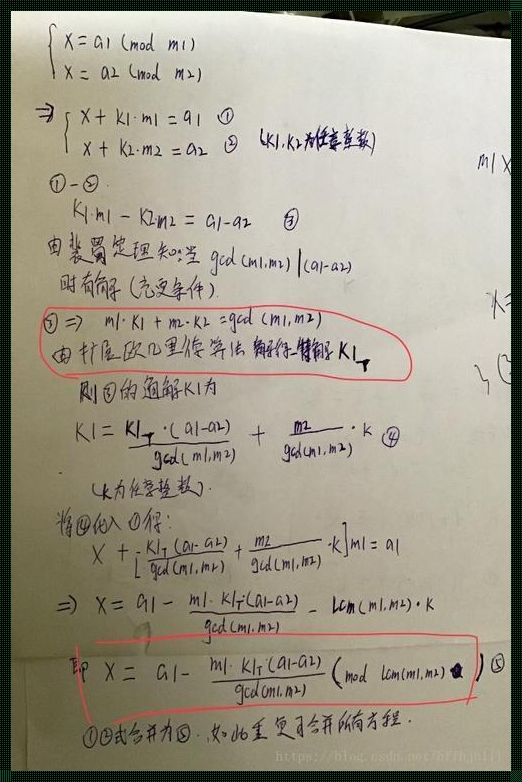 x = a1 (mod m1)
x = a2 (mod m2)
⇒ x + k1·m1 = a1 ①
x + k2·m2 = a2 ② (k1,k2为任意整数)
①-②
k1·m1 - k2·m2 = a1-a2 ③
由裴蜀定理知:当 gcd(m1,m2) | (a1-a2)
时有解 (充要条件).
③ ⇒ m1·k1 + m2·k2 = gcd(m1,m2)
由扩展欧几里得算法 解得 特解 k1_T
则③的通解k1为
k1 = k1_T·(a1-a2)/gcd(m1,m2) + m2/gcd(m1,m2)·k ④
(k为任意整数).
将④代入①得:
x + [k1_T(a1-a2)/gcd(m1,m2) + m2/gcd(m1,m2)·k]m1 = a1
⇒ x = a1 - m1·k1_T(a1-a2)/gcd(m1,m2) - lcm(m1,m2)·k
即 x = a1 - m1·k1_T(a1-a2)/gcd(m1,m2) (mod lcm(m1,m2)) ⑤
①②式合并为⑤. 如此重复可合并所有方程.
m1 x
x=